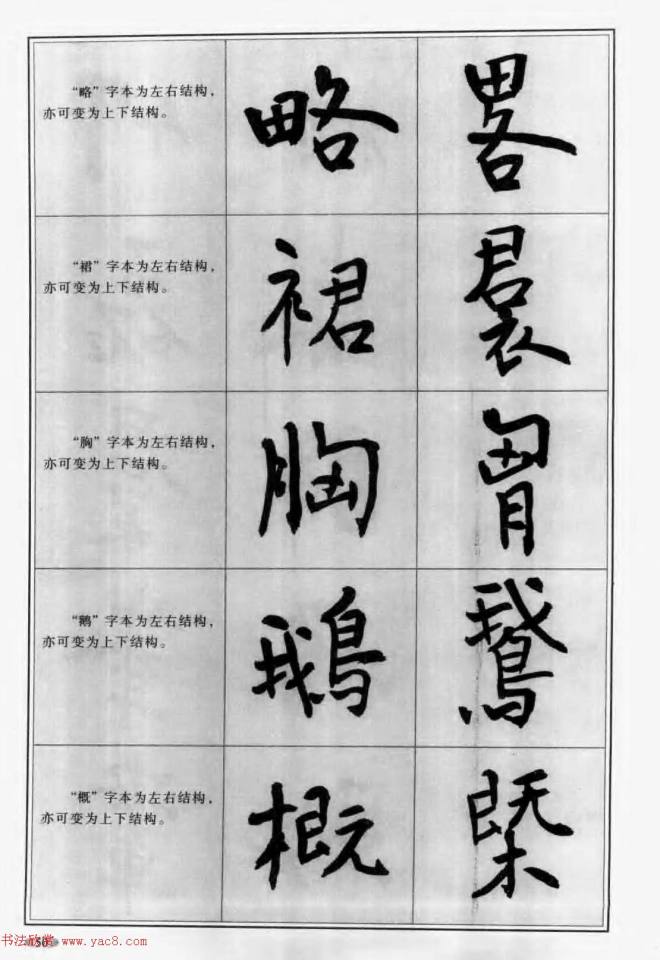 “略”字本为左右结构，
亦可变为上下结构。
略 畧
“裙”字本为左右结构，
亦可变为上下结构。
裙 裠
“胸”字本为左右结构，
亦可变为上下结构。
胸 胷
“鹅”字本为左右结构，
亦可变为上下结构。
鵝 鵞
“概”字本为左右结构，
亦可变为上下结构。
概 槩
书法欣赏 www.yac8.com
50